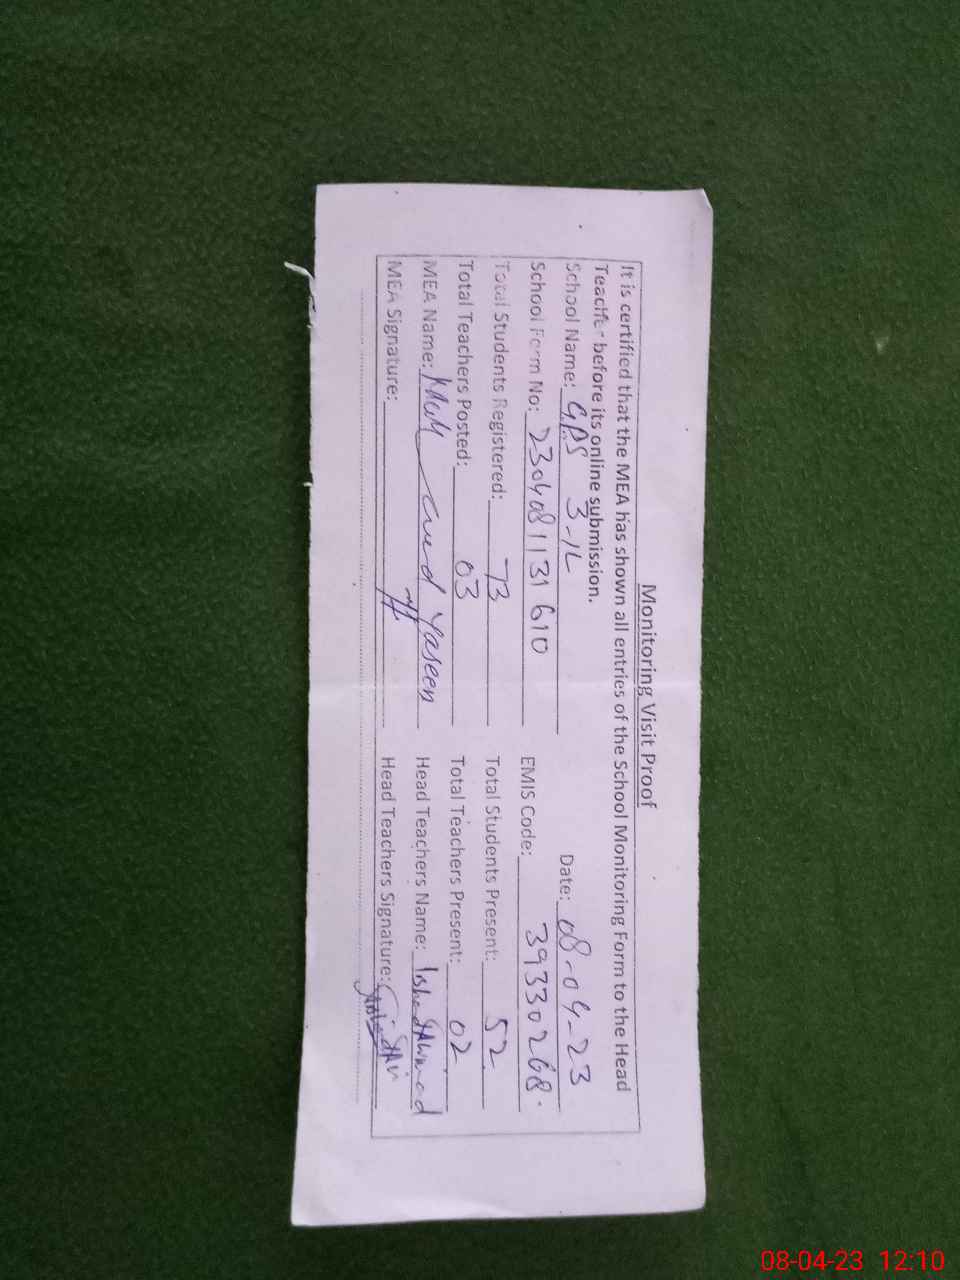 Monitoring Visit Proof
It is certified that the MEA has shown all entries of the School Monitoring Form to the Head
Teacher before its online submission.
School Name: GPS 3-1L Date: 08-04-23
School Form No: 230408113 1610 EMIS Code: 39330268.
Total Students Registered: 73 Total Students Present: 52
Total Teachers Posted: 03 Total Teachers Present: 02
MEA Name: Yaseen Head Teachers Name:
MEA Signature: Head Teachers Signature:
08-04-23 12:10